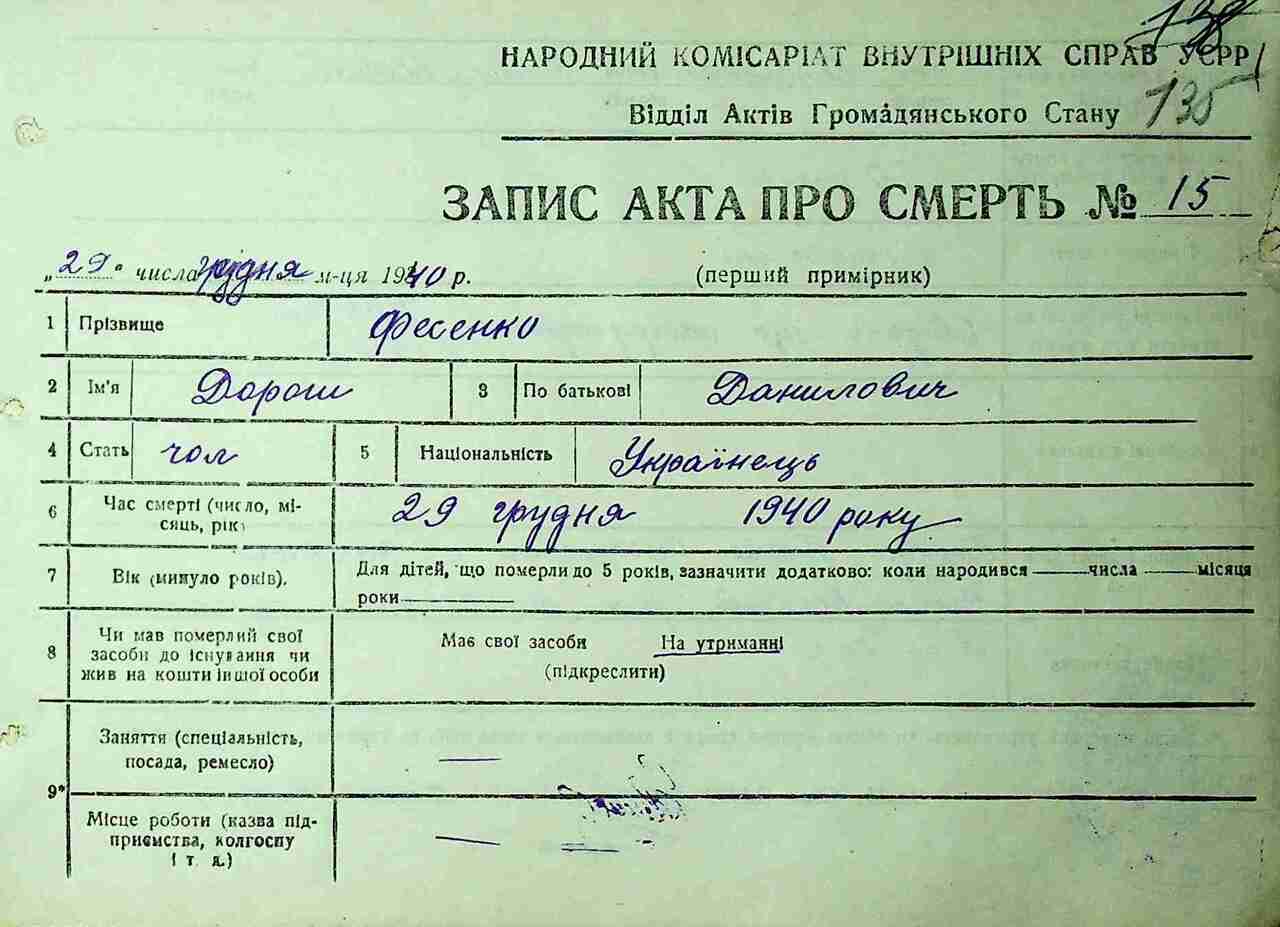 138
НАРОДНИЙ КОМІСАРІАТ ВНУТРІШНІХ СПРАВ УСРР
Відділ Актів Громадянського Стану 135
ЗАПИС АКТА ПРО СМЕРТЬ № 15
„29“ числа грудня м-ця 1940 р. (перший примірник)
1 Прізвище Фесенко
2 Ім'я Дорош 3 По батькові Данилович
4 Стать чол 5 Національність Українець
6 Час смерті (число, мі-
сяць, рік) 29 грудня 1940 року
7 Вік (минуло років). Для дітей, що померли до 5 років, зазначити додатково: коли народився — числа — місяця
роки —
8 Чи мав померлий свої
засоби до існування чи
жив на кошти іншої особи
Має свої засоби На утриманні
(підкреслити)
9*
Заняття (спеціальність,
посада, ремесло) —
Місце роботи (назва під-
приємства, колгоспу
і т. д.) —